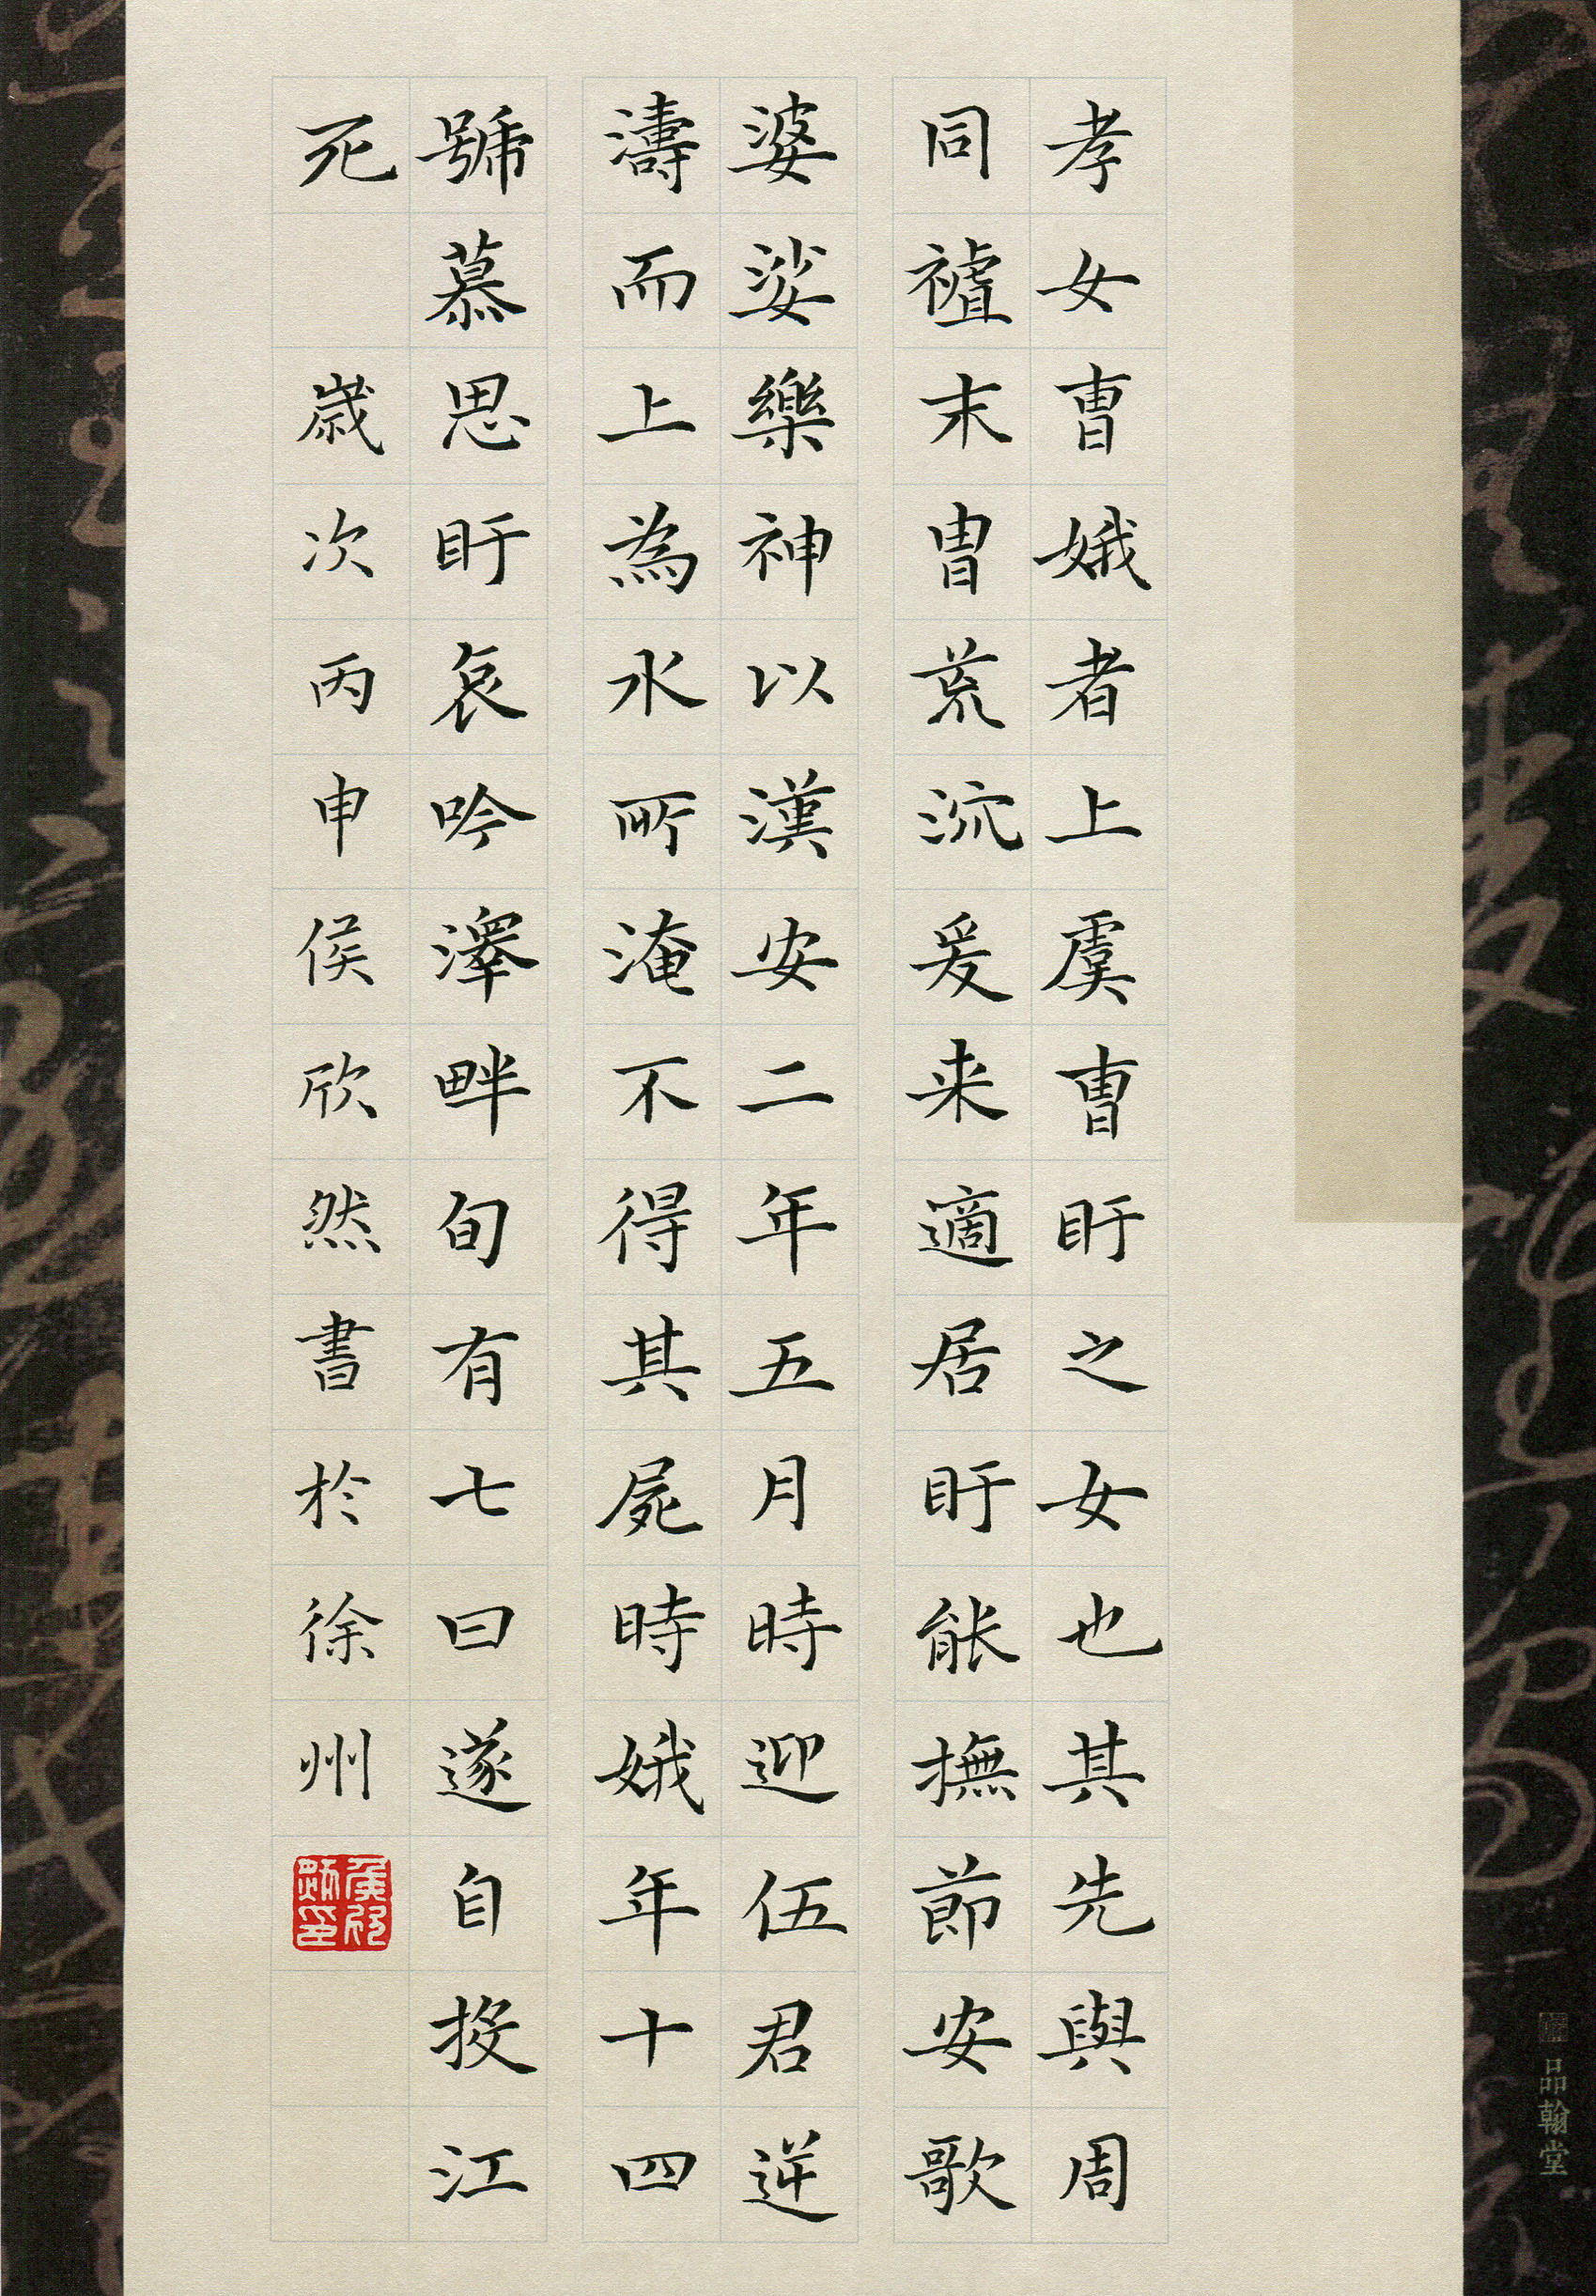 孝女曺娥者上虞曺盱之女也其先與周
同禇末胄荒沉爰来適居盱能撫節安歌
婆娑樂神以漢安二年五月時迎伍君逆
濤而上為水所淹不得其屍時娥年十四
號慕思盱哀吟澤畔旬有七日遂自投江
死 歲次丙申侯欣然書於徐州
品翰堂